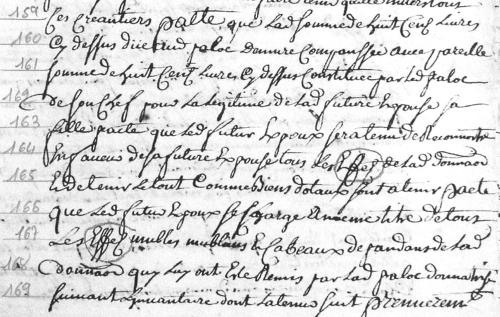 159 Ces creantiers pacte que lad somme de huit Cens livres
160 Cy dessus dice fud paloc demure Compansse avec pareille
161 somme de huit Cens livres Cy dessus Constituee par lad paloc
162 de son Chef pour la legitime de lad future Expouse sa
163 fille pacte que led futur Expoux sera tenu de Reconnoitre
164 En faveur de sa future Expouse tous les Effes de lad donnaon
165 Et de tenir le tout Comme biens dotaux sont a tenir pacte
166 que led futur Expoux se charge au mesme titre de tous
167 Les Effes meubles meublans Et Cabeaux dependans de lad
168 donnaon quy luy ont Este Remis par lad paloc donnatrisse
169 suivant Linvantaire dont la tenue suit Premierem